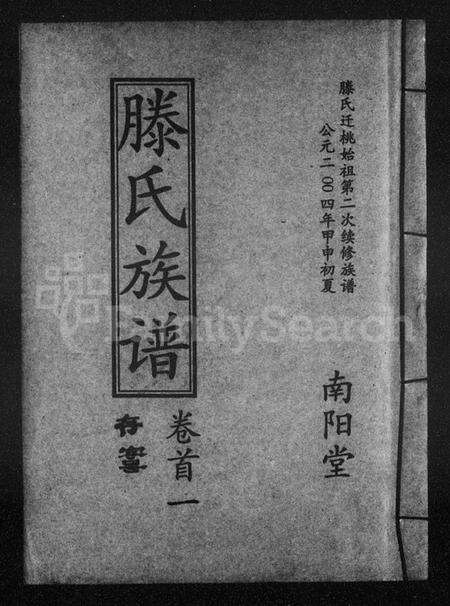 滕氏迁桃始祖第二次续修族谱
公元二〇〇四年甲申初夏
南阳堂
滕氏族谱
卷首一
存
FamilySearch